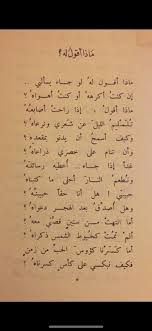 مَاذا أقولُ لَهُ؟
ماذا أقول له لو جاء يسألني ..
إن كنت أكرهه أو كنت أهواه ؟
ماذا أقول ، إذا راحت أصابعه
تلملم الليل عن شعري وترعاه ؟
وكيف أسمح أن يدنو بمقعده ؟
وأن تنام على خصري ذراعاه ؟
غدا إذا جاء .. أعطيه رسائله
ونطعم النار أحلى ما كتبناه
حبيبتي ! هل أنا حقا حبيبته ؟
وهل أصدق بعد الهجر دعواه ؟
أما انتهت من سنين قصتي معه ؟
ألم تمت كخيوط الشمس ذكراه ؟
أما كسرنا كؤوس الحب من زمن
فكيف نبكي على كأس كسرناه ؟